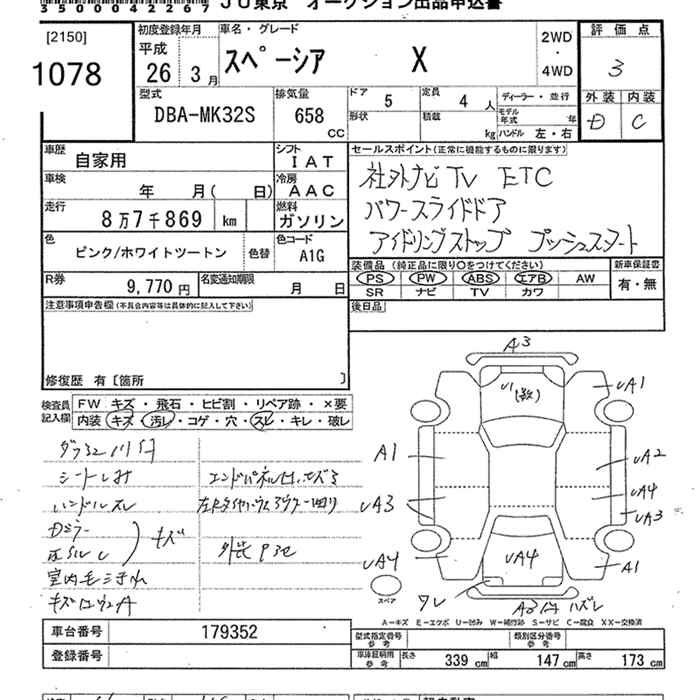 35000422 67 JU東京 オークション出品申込書
[2150]
1078
初度登録年月
平成
26 3月
車名・グレード
スペーシア X
2WD
・
4WD
評価点
3
外装 内装
D C
型式
DBA-MK32S
排気量
658
CC
ドア 5
定員 4 人
形状
積載 kg
ディーラー・並行
モデル年式 年
ハンドル 左・右
車歴 自家用
シフト IAT
車検 年 月( 日)
冷房 AAC
走行 8万7千869 km
燃料 ガソリン
色 ピンク/ホワイトツートン
色替
色コード A1G
R券 9,770円
名変通知期限 月 日
セールスポイント(正常に機能するものに限ります)
社外ナビ TV ETC
パワースライドドア
アイドリングストップ プッシュスタート
装備品(純正品に限り○をつけてください)
PS PW ABS エアB AW
SR ナビ TV カワ
新車保証書
有・無
後日品
注意事項申告欄(不具合内容等は具体的に記入して下さい)
修復歴 有〔箇所 〕
検査員記入欄
FW キズ・飛石・ヒビ割・リペア跡・×要
内装 キズ・汚レ・コゲ・穴・スレ・キレ・破レ
シートしみ
ハンドルスレ
Dミラー
キズ
A3
U1
(多数)
UA1
A1
UA2
UA4
UA3
UA3
UA4
UA4
A1
ワレ
ハズレ
スペア
A―キズ E―エクボ U―凹み W―補修跡 S―サビ C―腐食 XX―交換済
車台番号 179352
登録番号
型式指定番号 参考
類別区分番号 参考
車庫証明用 参考
長さ 339cm 幅 147cm 高さ 173cm